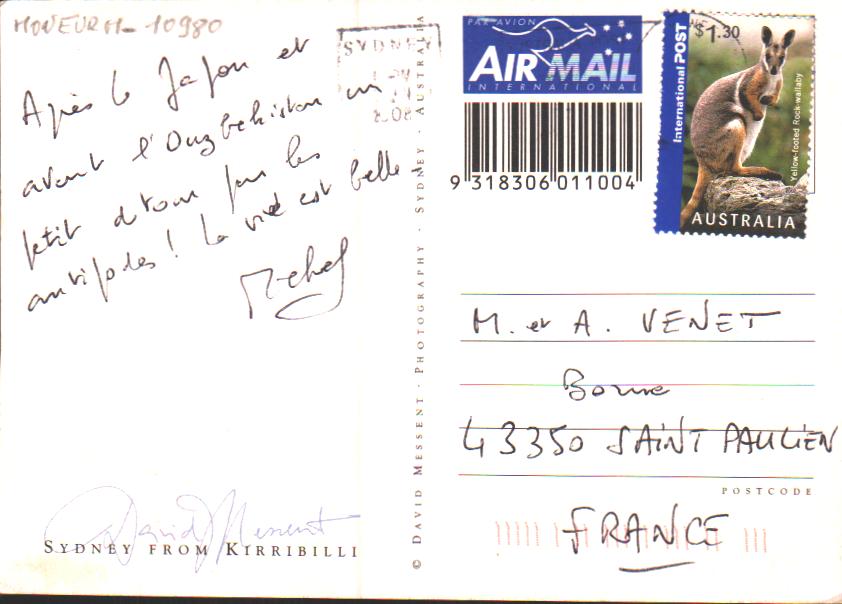 MONEURM-10980
Après le Japon et
avant l'Ouzbekistan un
petit détour par les
antipodes! La vie est belle.
Michel
David Messent
SYDNEY FROM KIRRIBILLI
© DAVID MESSENT · PHOTOGRAPHY · SYDNEY · AUSTRALIA
SYDNEY
PAR AVION
AIR MAIL
INTERNATIONAL
9 318306 011004
International POST
$1.30
Yellow-footed Rock-wallaby
AUSTRALIA
M. et A. VENET
Borne
43350 SAINT PAULIEN
POSTCODE
FRANCE